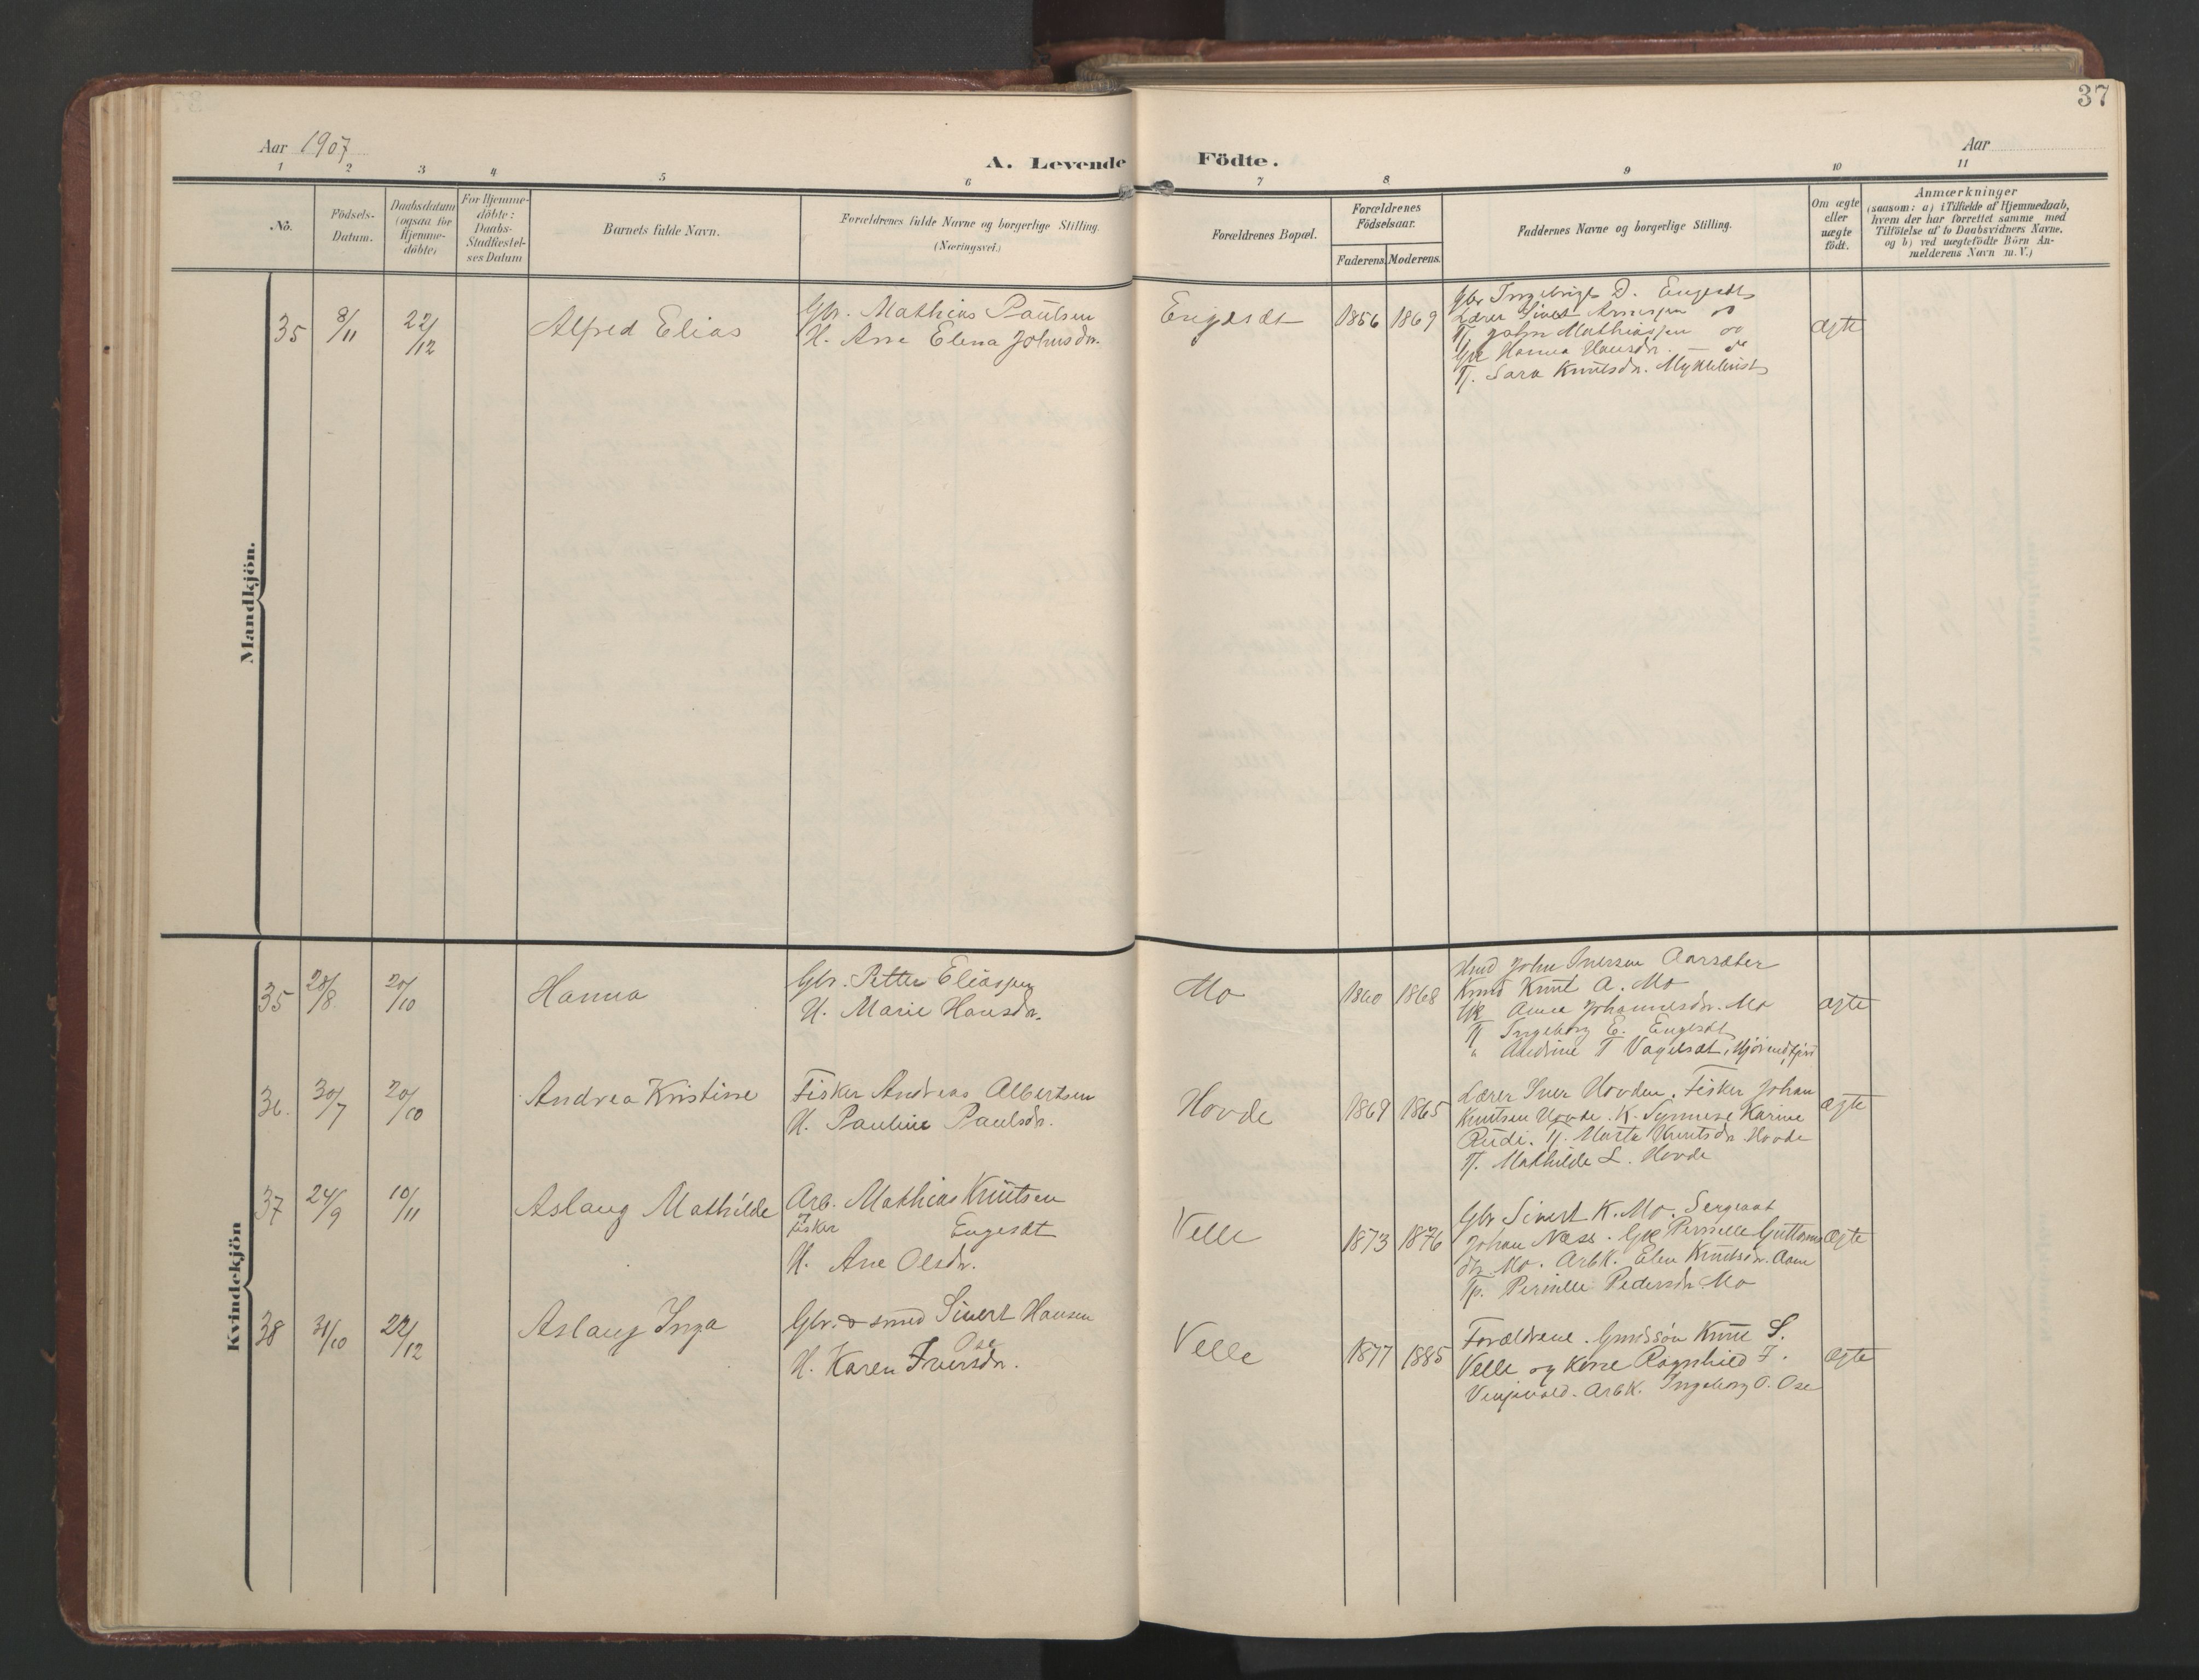 37
Aar 1907
A. Levende Födte.
Aar
1 2 3 4 5 6 7 8 9 10 11
No.
Födsels-
Datum.
Daabsdatum
(ogsaa for
Hjemme-
döbte)
For Hjemme-
döbte:
Daabs-
Stadfæstel-
ses Datum
Barnets fulde Navn.
Forældrenes fulde Navne og borgerlige Stilling.
(Næringsvei.)
Forældrenes Bopæl.
Forældrenes
Födselsaar.
Faderens. Moderens.
Faddernes Navne og borgerlige Stilling.
Om ægte
eller
uægte
födt.
Anmærkninger
(saasom: a) i Tilfælde af Hjemmedaab,
hvem der har forrettet samme med
Tilföielse af to Daabsvidners Navne.
og b) ved uægtefödte Börn An-
melderens Navn m.V.)
Mandkjön.
35 8/11 22/12 Alfred Elias
Gbr. Mathias Paulsen
H. Ane Elena Johnsdr.
Engesæt 1856 1869
Gbr Ingebrigt D. Engesæt
Lærer Sivert Arnesen do
Tj. John Mathiassen do
Gk Hanna Hansdr. — do
Tj. Sara Knutsdr. Myklebust
ægte
Kvindekjön
35 28/8 20/10 Hanna
Gbr. Petter Eliassen
H. Marie Hansdr.
Mo 1860 1868
Ungk John Iversen Aarsæter
Knut A. Mo
Gk Anne Johannesdr. Mo
Tj Ingeborg E. Engesæt
" T Vagesæt, Hjörendfjord
ægte
36. 30/7 20/10 Andrea Kristine
Fisker Andreas Albertsen
H. Pauline Paulsdr.
Hovde 1869 1865
Lærer Iver Hovden. Fisker Johan
Knutsen Hovde. K. Synneve Karine
Rudi. Tj. Marte Knutsdr Hovde
Tj. Mathilde L. Hovde
ægte
37 24/9 10/11 Aslaug Mathilde
Arb. Mathias Knutsen
Fisker Engesæt
H. Ane Olsdr.
Velle 1873 1876
Gbr Sivert K. Mo. Sergeant
Johan Næss. Gk Pernille Guttorms
dr. Mo. Arbk. Elen Knutsdr. Aam
Tp. Pernille Pedersdr. Mo
ægte
38 31/10 22/12 Aslaug Inga
Gbr. & smed Sivert Hansen
Ose
H. Karen Iversdr.
Velle 1877 1885
Forældrene. Gmdssön Knut S.
Velle og Kone Ragnhild I.
Arbk. Ingeborg O. Ose
ægte